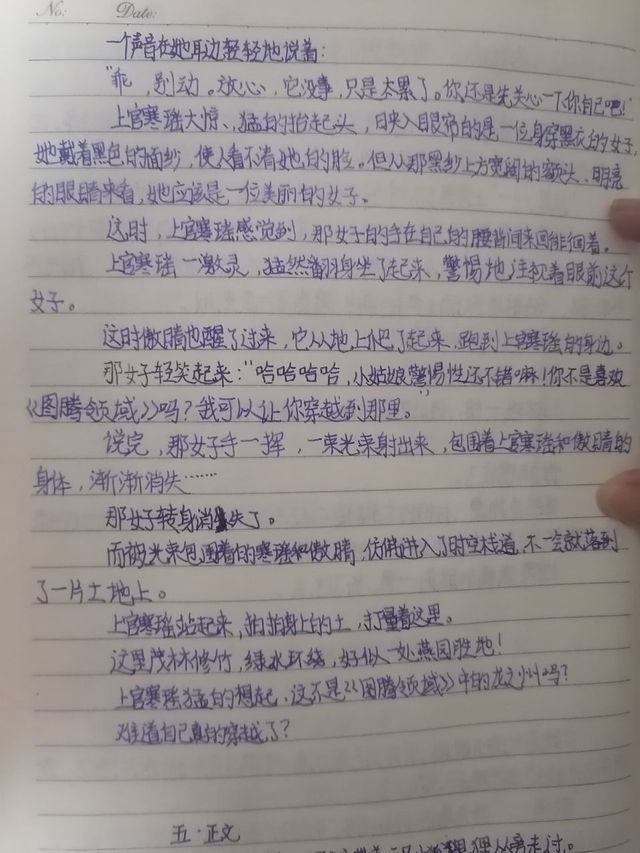 No: Date:
一个声音在她耳边轻轻地说着：
“乖，别动。放心，它没事，只是太累了。你还是先关心一下你自己吧！”
上官寒瑶大惊、猛的抬起头，日夹入眼帘的是一位身穿黑衣的女子，
她戴着黑色的面纱，使人看不清她的脸。但从那黑纱上方宽阔的额头、明亮
的眼睛来看，她应该是一位美丽的女子。
这时，上官寒瑶感觉到，那女子的手在自己的腰背间来回徘徊着。
上官寒瑶一激灵，猛然翻身坐了起来，警惕地注视着眼前这个
女子。
这时傲晴也醒了过来，它从地上爬了起来，跑到上官寒瑶的身边。
那女子轻笑起来：“哈哈哈哈，小姑娘警惕性还不错嘛！你不是喜欢
《图腾领域》吗？我可以让你穿越到那里。”
说完，那女子手一挥，一束光束射出来，包围着上官寒瑶和傲晴的
身体，渐渐消失……
那女子转身消失了。
而被光束包围着的寒瑶和傲晴，仿佛进入了时空栈道，不一会就落到
了一片土地上。
上官寒瑶站起来，拍拍身上的土，打量着这里。
这里茂林修竹，绿水环绕，好似一处燕园胜地！
上官寒瑶猛的想起，这不是《图腾领域》中的龙之州吗？
难道自己真的穿越了？
五·正文
从旁走过。